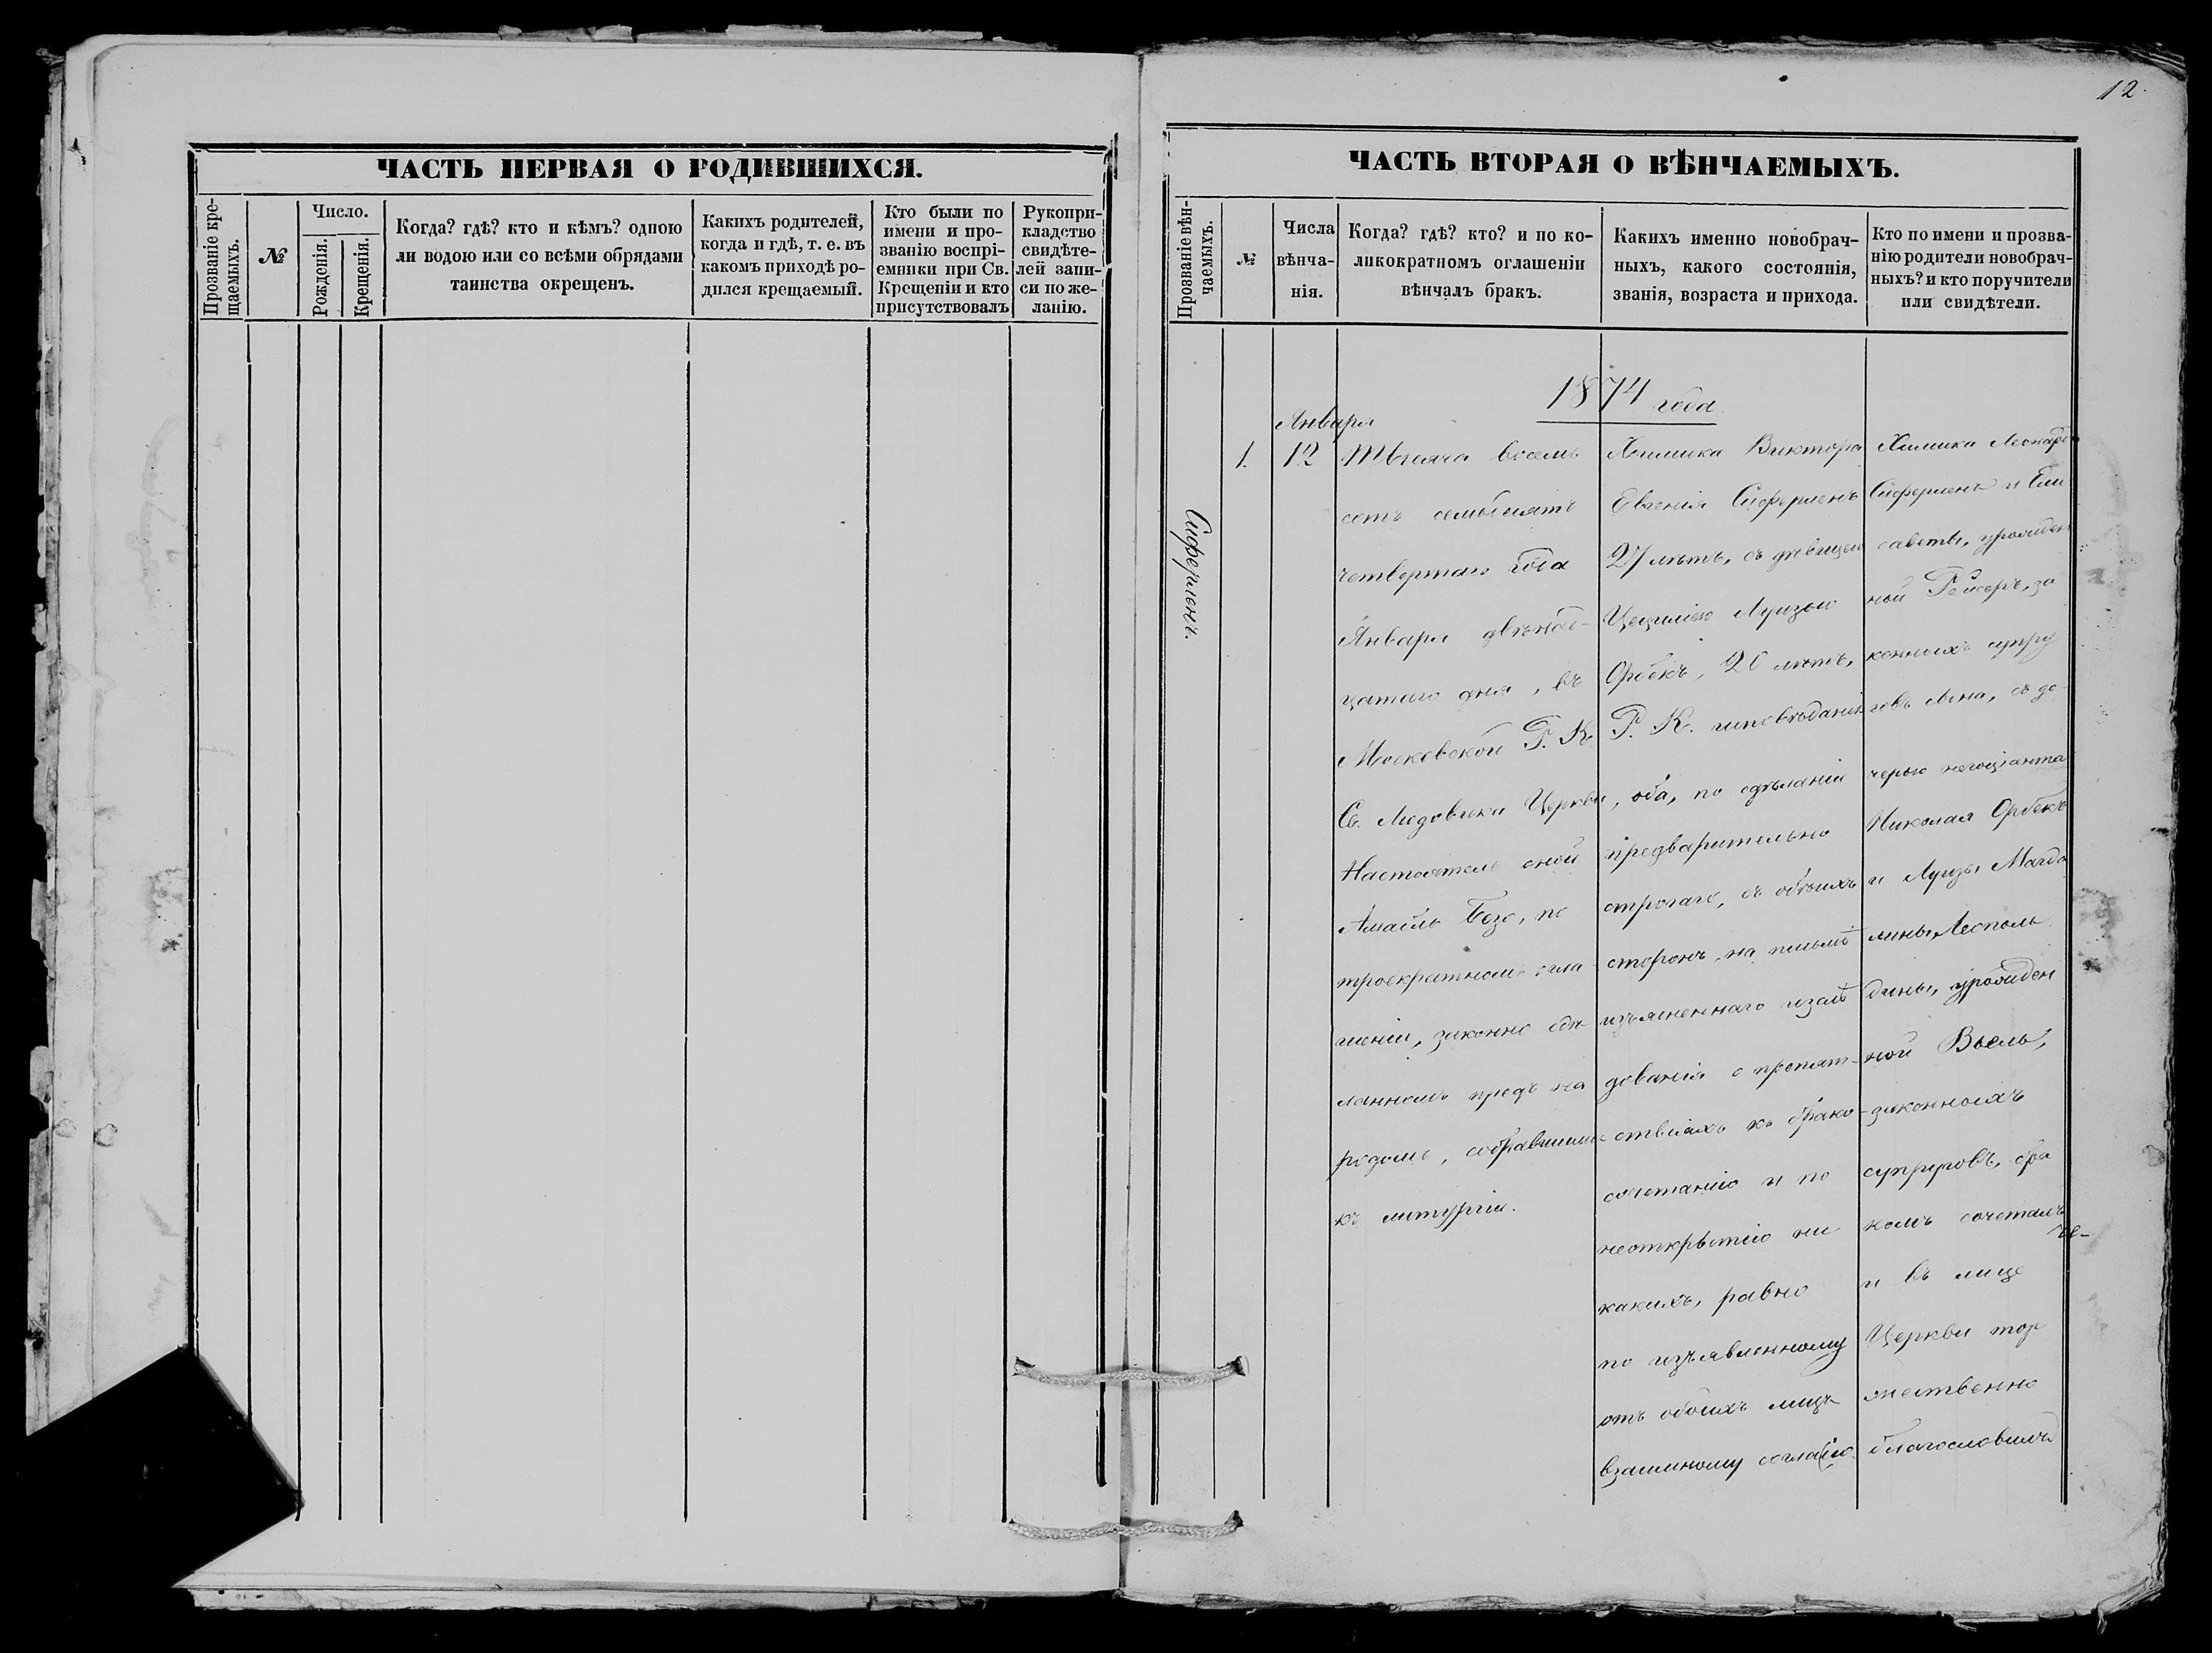 ЧАСТЬ ПЕРВАЯ О РОДИВШИХСЯ.
Прозваніе кре-
щаемыхъ.
№
Число.
Рожденія.
Крещенія.
Когда? гдѣ? кто и кѣмъ? одною
ли водою или со всѣми обрядами
таинства окрещенъ.
Какихъ родителей,
когда и гдѣ, т. е. въ
какомъ приходѣ ро-
дился крещаемый.
Кто были по
имени и про-
званію воспрі-
емники при Св.
Крещеніи и кто
присутствовалъ
Рукопри-
кладство
свидѣте-
лей запи-
си по же-
ланію.
12.
ЧАСТЬ ВТОРАЯ О ВѢНЧАЕМЫХЪ.
Прозваніе вѣн-
чаемыхъ.
№
Числа
вѣнча-
нія.
Когда? гдѣ? кто? и по ко-
ликократномъ оглашеніи
вѣнчалъ бракъ.
Какихъ именно новобрач-
ныхъ, какого состоянія,
званія, возраста и прихода.
Кто по имени и прозва-
нію родители новобрач-
ныхъ? и кто поручители
или свидѣтели.
1874 года
Сиферленъ.
1.
Января
12
Тысяча восемь
сотъ семьдесятъ
четвертаго года
Января двѣнад-
цатаго дня, въ
Московской Р. К.
Св. Людовика Церкви,
Настоятель оной
Амаблъ по
троекратномъ огла-
шеніи, законно сдѣ-
ланномъ предъ на
родомъ, собравшимся
къ литургіи.
Химика Виктора
Евгенія Сиферленъ
27 лѣтъ, съ дѣвицею
Цециліею Луизою
Орбекъ, 20 лѣтъ,
Р. К. исповѣданія
оба, по сдѣланіи
предварительно
строгаго, съ обѣихъ
сторонъ, на письмѣ
изъясненнаго изслѣ
дованія о препят-
ствіяхъ къ брако-
сочетанію и по
неоткрытію ни
какихъ, равно
по изъявленному
отъ обоихъ лицъ
взаимному согласію
Химика Леонарда
Сиферленъ и Ели
саветы, урожден
ной за
конныхъ супру
говъ сына, съ до-
черью негоціанта
Николая Орбекъ
и Луизы Магда
лины Леополь
дины, урожден
ной
законныхъ
супруговъ, бра
комъ сочеталъ
и въ лице
Церкви тор
жественно
благословилъ